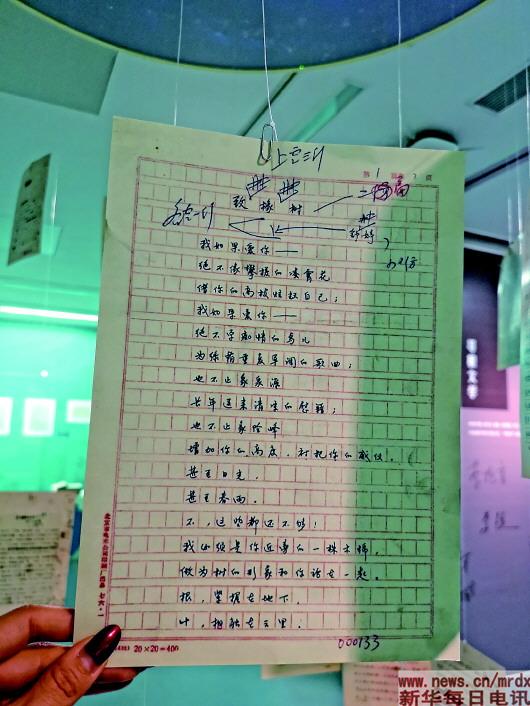 上空三行
第 1 页
致橡树
舒婷
我如果爱你——
绝不像攀援的凌霄花
借你的高枝炫耀自己;
我如果爱你——
绝不学痴情的鸟儿
为绿荫重复单调的歌曲;
也不止象泉源
长年送来清凉的慰藉;
也不止象险峰
增加你的高度,衬托你的威仪。
甚至日光。
甚至春雨。
不,这些都还不够!
我必须是你近旁的一株木棉,
做为树的形象和你站在一起。
根,紧握在地下,
叶,相触在云里。
000133
20×20=400
北京市电车公司印刷厂出品 七六·二
www.news.cn/mrdx
新华每日电讯